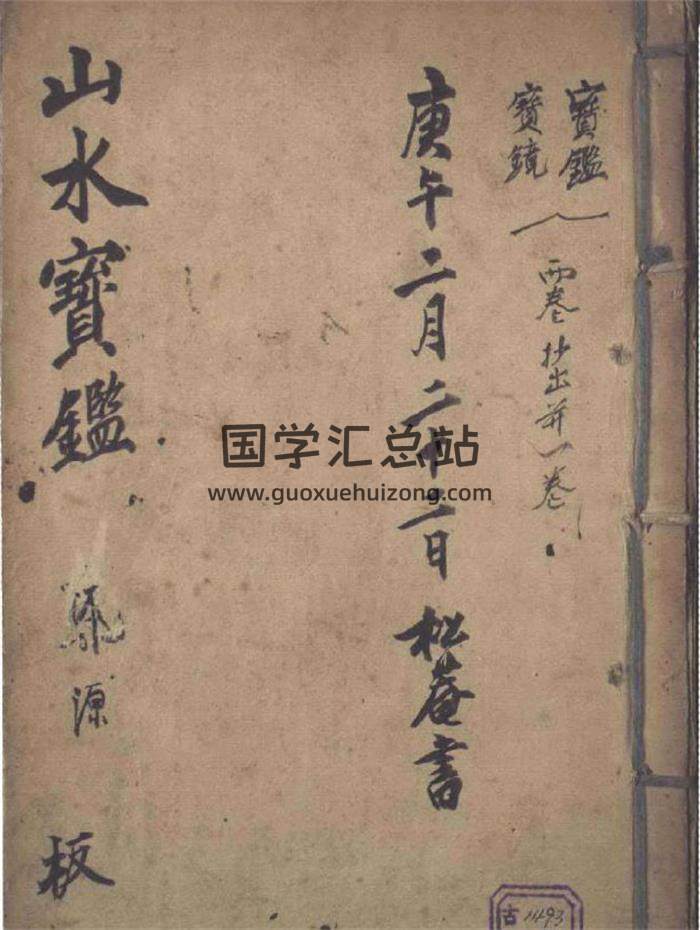 寶鑑
寶鏡
兩卷抄出并一卷
庚午二月二十二日 松菴書
山水寶鑑
源
板
国学汇总站
www.guoxuehuizong.com
古 11493